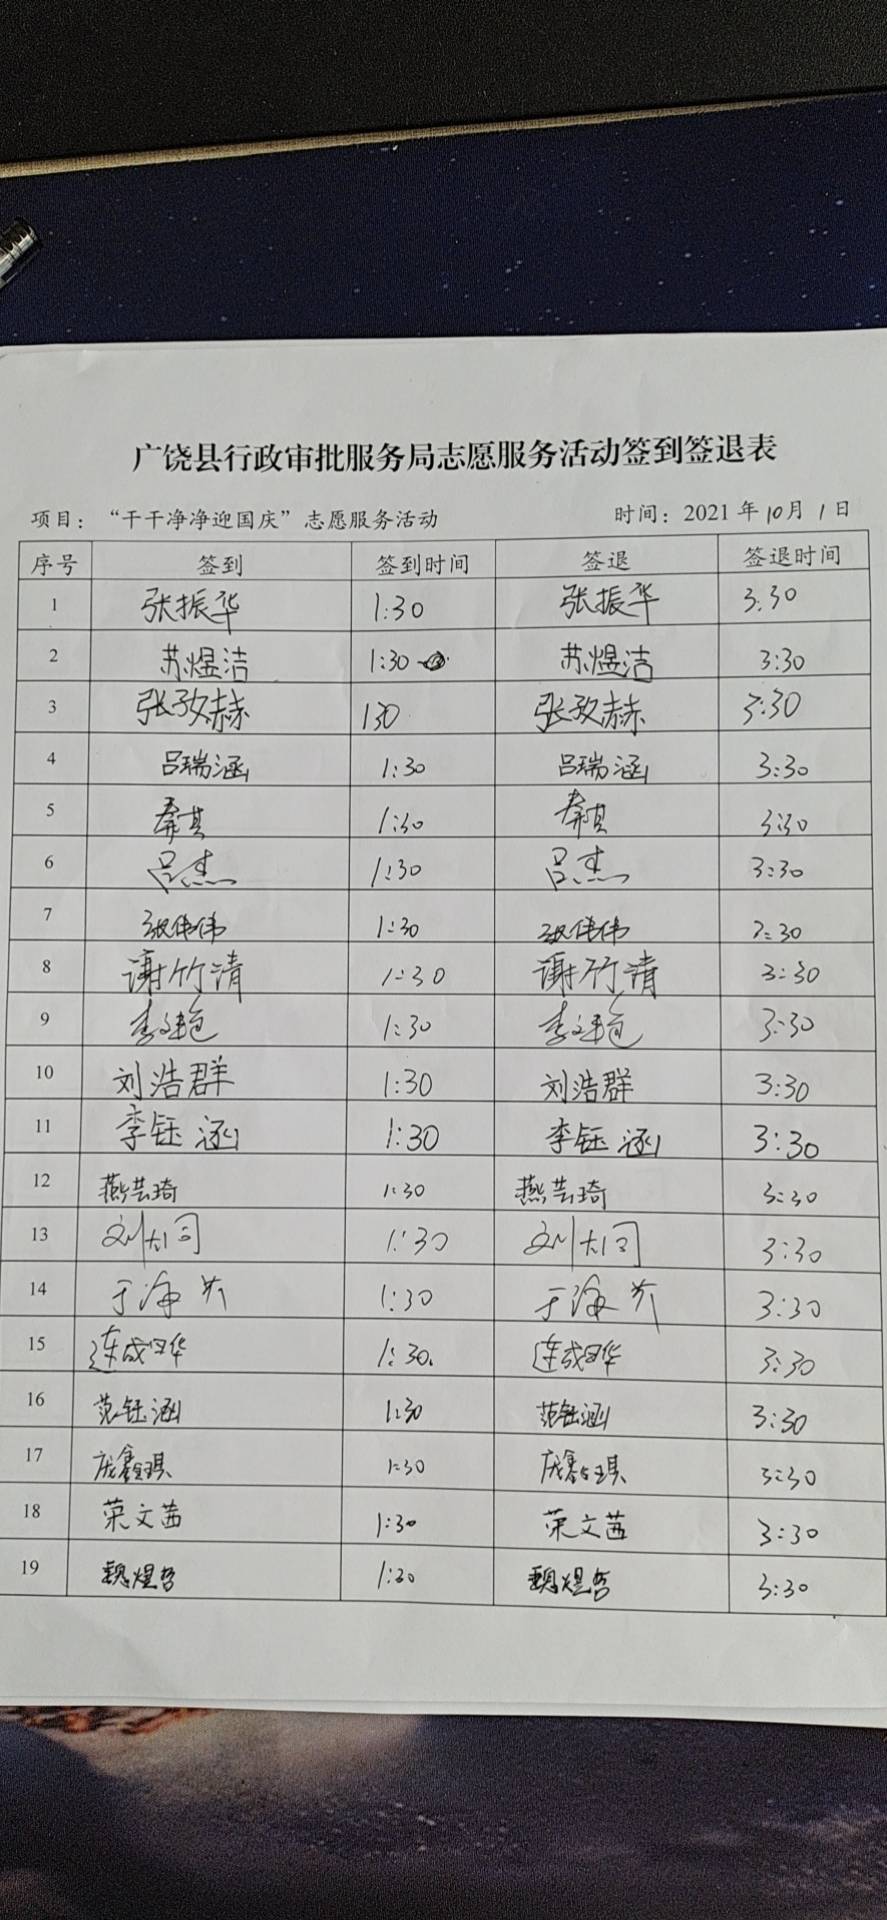 广饶县行政审批服务局志愿服务活动签到签退表
项目：“干干净净迎国庆”志愿服务活动 时间：2021年10月1日
序号 签到 签到时间 签退 签退时间
1 张振华 1:30 张振华 3:30
2 苏煜洁 1:30 苏煜洁 3:30
3 张孜赫 130 张孜赫 3:30
4 吕瑞涵 1:30 吕瑞涵 3:30
5 1:30 3:30
6 吕杰 1:30 吕杰 3:30
7 张伟伟 1:30 张伟伟 3:30
8 谢竹清 1:30 谢竹清 3:30
9 1:30 3:30
10 刘浩群 1:30 刘浩群 3:30
11 李钰涵 1:30 李钰涵 3:30
12 燕芸琦 1:30 燕芸琦 3:30
13 刘大同 1:30 刘大同 3:30
14 1:30 3:30
15 1:30. 3:30
16 范钰涵 1:30 范钰涵 3:30
17 1:30 3:30
18 荣文茜 1:30 荣文茜 3:30
19 魏煜哲 1:30 魏煜哲 3:30